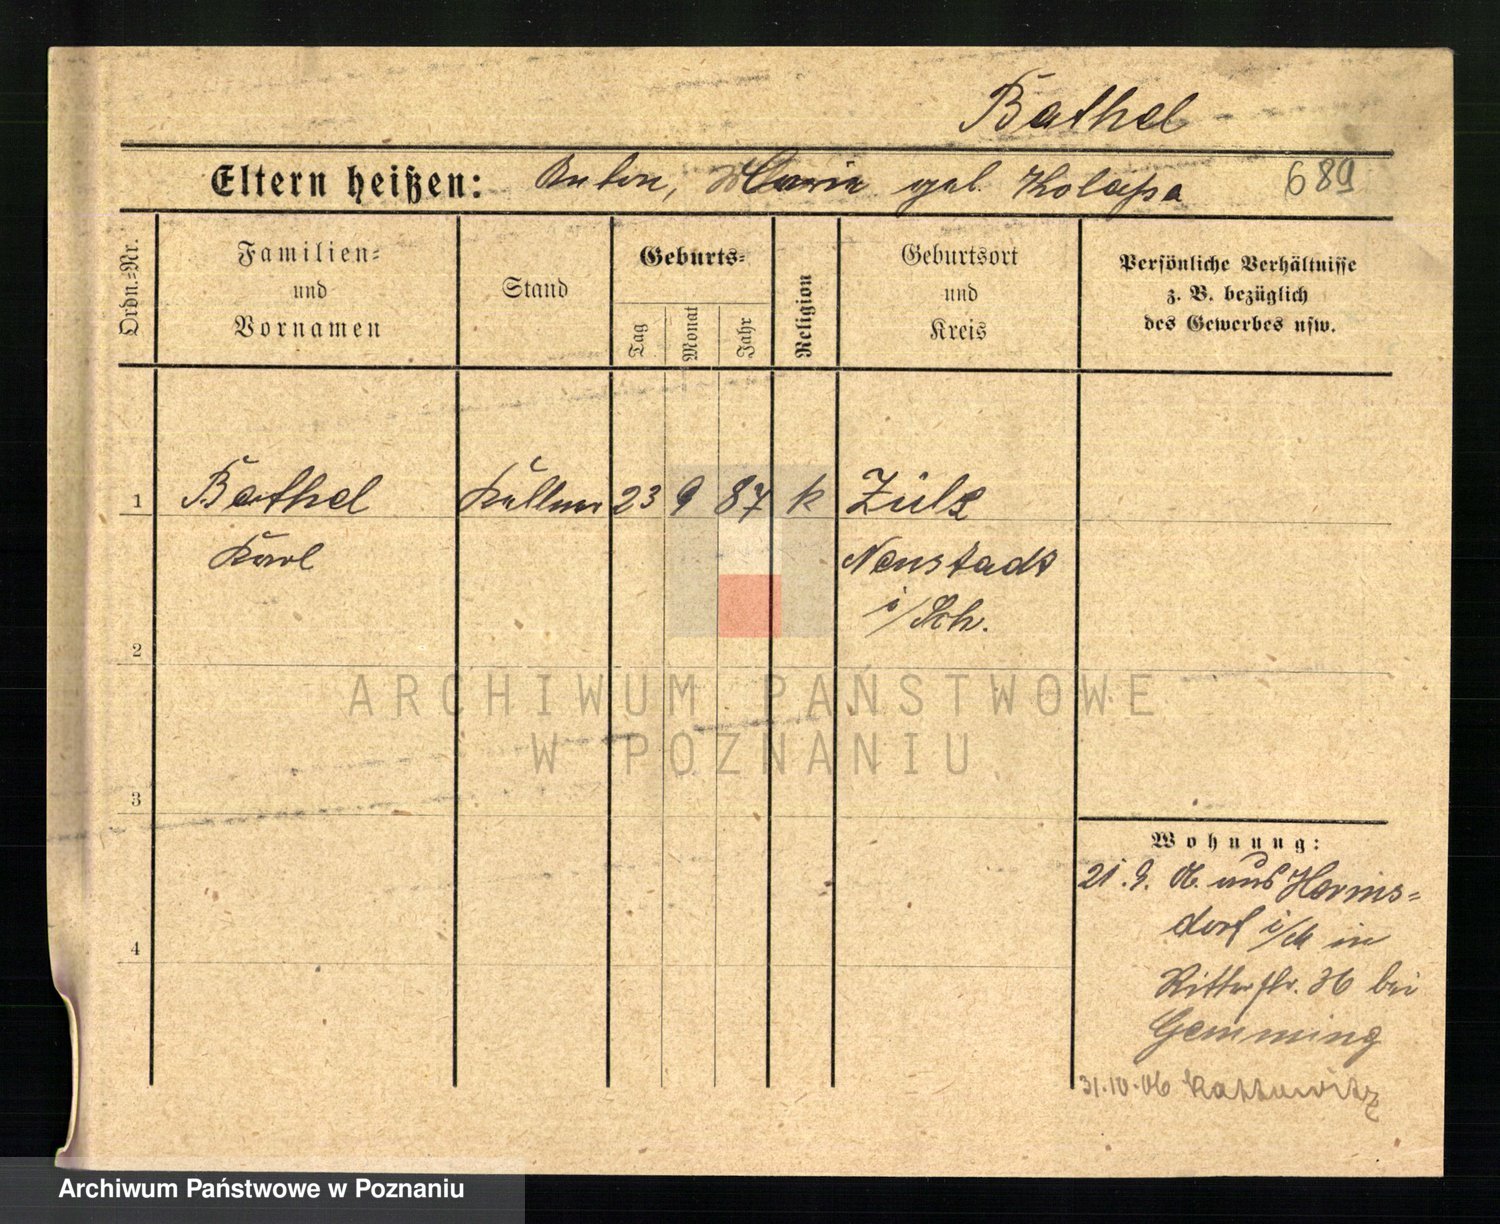 Bathel
Eltern heißen: Anton, Marie geb. Kolassa 689
Ordn.-Nr.
Familien-
und
Vornamen
Stand
Geburts-
Tag
Monat
Jahr
Religion
Geburtsort
und
Kreis
Persönliche Verhältnisse
z. B. bezüglich
des Gewerbes usw.
1 Bathel Kellner 23 9 87 k Zülz
Karl Neustadt
i/Sch.
2
ARCHIWUM PAŃSTWOWE
W POZNANIU
3
Wohnung:
21. 9. 06. aus Herms-
dorf in
4
Ritterstr. 36 bei
Gemming
31.10.06 Kattowitz
Archiwum Państwowe w Poznaniu